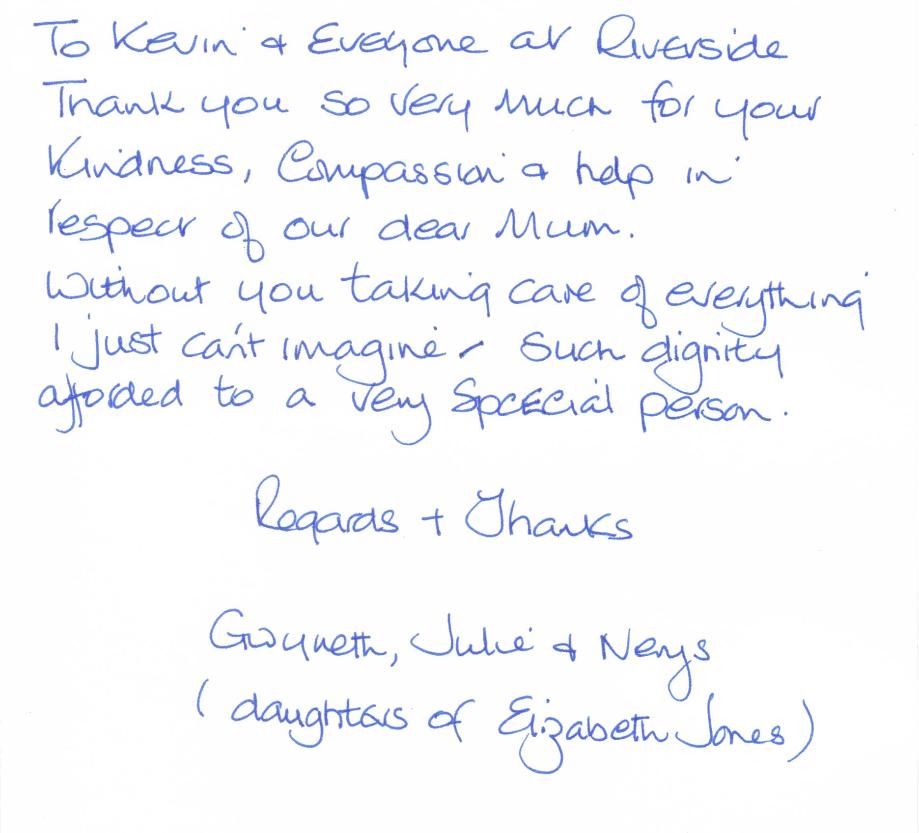 To Kevin & Everyone at Riverside
Thank you so very much for your
Kindness, Compassion & help in
respect of our dear Mum.
Without you taking care of everything
I just can't imagine - Such dignity
afforded to a very Special person.
Regards + Thanks
Gwyneth, Julie & Nerys
(daughters of Elizabeth Jones)